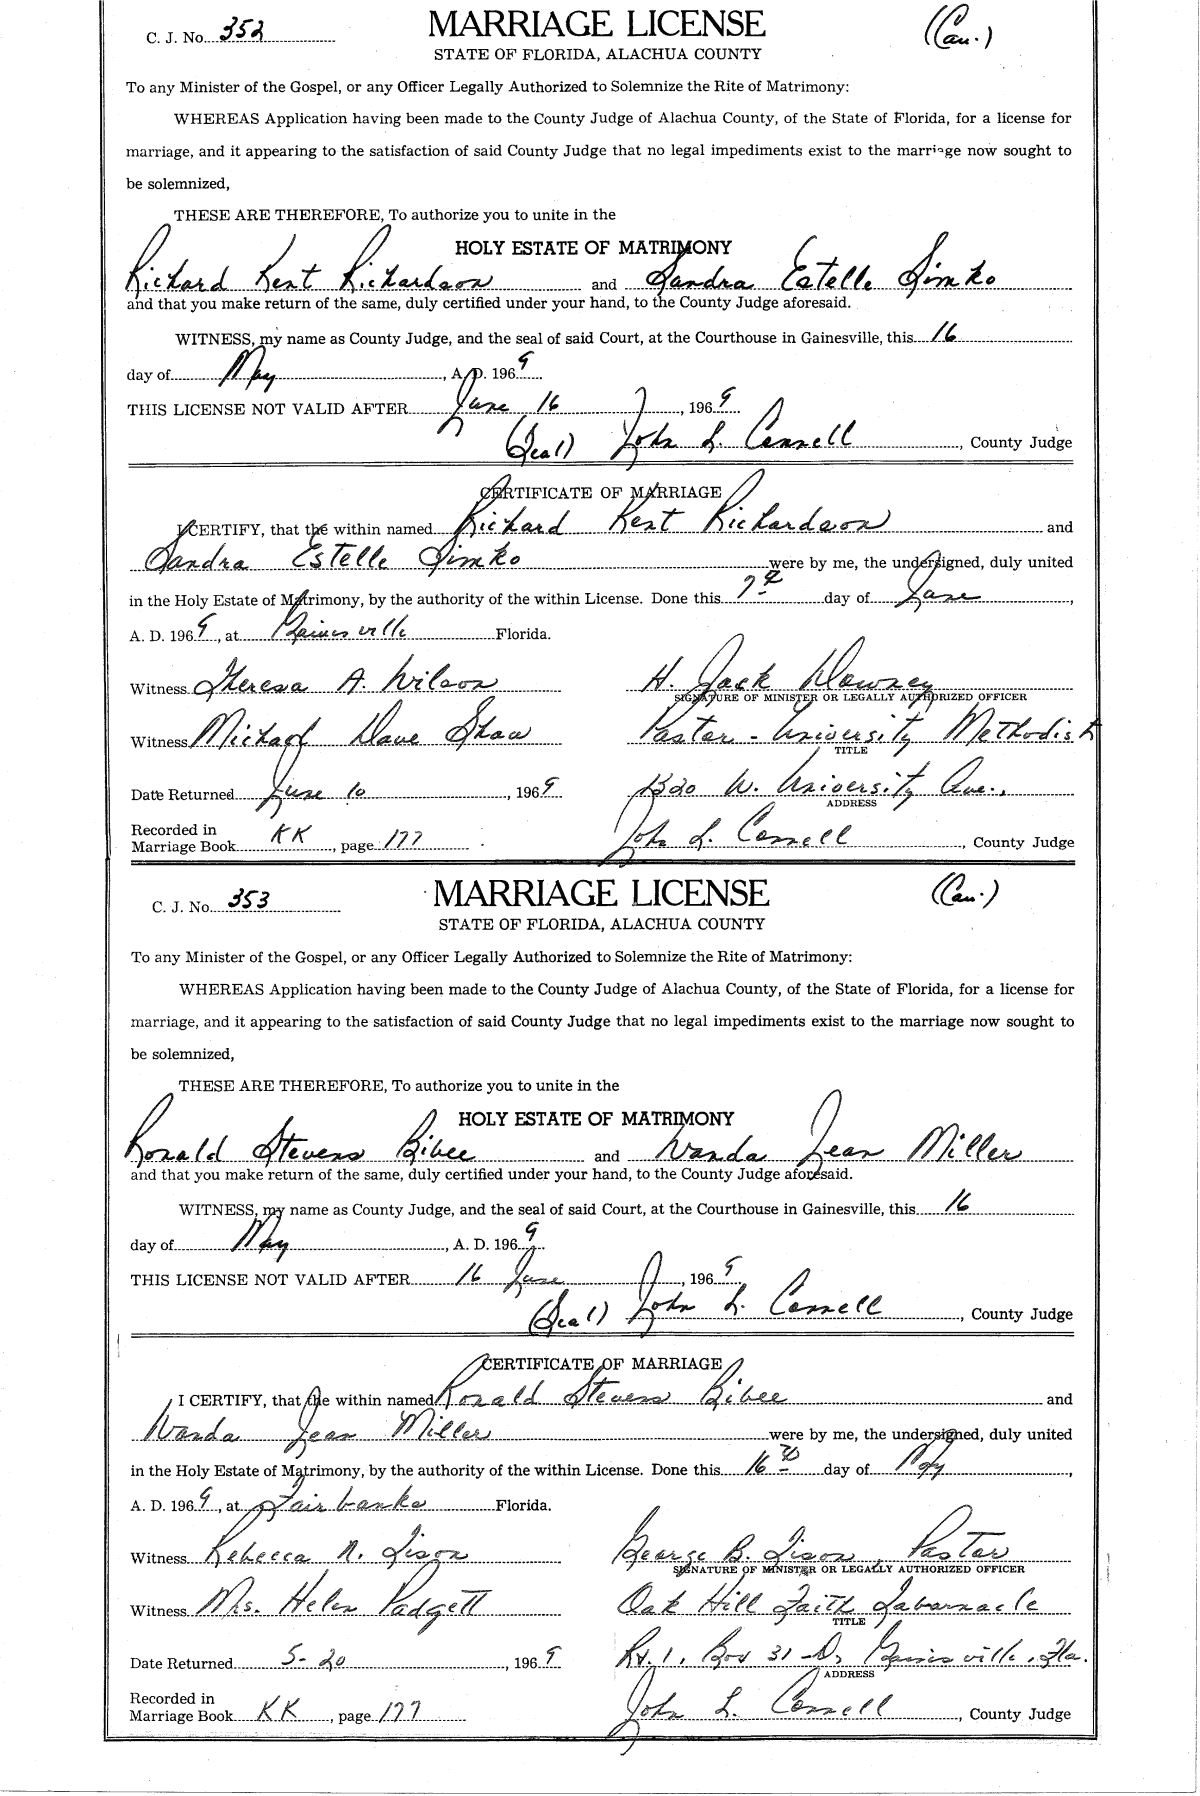 C. J. No. 352
MARRIAGE LICENSE
(Cau.)
STATE OF FLORIDA, ALACHUA COUNTY
To any Minister of the Gospel, or any Officer Legally Authorized to Solemnize the Rite of Matrimony:
WHEREAS Application having been made to the County Judge of Alachua County, of the State of Florida, for a license for
marriage, and it appearing to the satisfaction of said County Judge that no legal impediments exist to the marriage now sought to
be solemnized,
THESE ARE THEREFORE, To authorize you to unite in the
HOLY ESTATE OF MATRIMONY
Richard Kent Richardson and Sandra Estelle Simko
and that you make return of the same, duly certified under your hand, to the County Judge aforesaid.
WITNESS, my name as County Judge, and the seal of said Court, at the Courthouse in Gainesville, this 16
day of May, A. D. 1969
THIS LICENSE NOT VALID AFTER June 16, 1969
(Seal) John L. Connell, County Judge
CERTIFICATE OF MARRIAGE
I CERTIFY, that the within named Richard Kent Richardson and
Sandra Estelle Simko were by me, the undersigned, duly united
in the Holy Estate of Matrimony, by the authority of the within License. Done this 7th day of June,
A. D. 1969, at Gainesville Florida.
Witness Theresa A. Wilson H. Jack Downey
SIGNATURE OF MINISTER OR LEGALLY AUTHORIZED OFFICER
Witness Michael Dave Shaw Pastor - University Methodist
TITLE
Date Returned June 10, 1969 1320 W. University Ave.,
ADDRESS
Recorded in
Marriage Book KK, page 177 John L. Connell, County Judge
C. J. No. 353
MARRIAGE LICENSE
(Cau.)
STATE OF FLORIDA, ALACHUA COUNTY
To any Minister of the Gospel, or any Officer Legally Authorized to Solemnize the Rite of Matrimony:
WHEREAS Application having been made to the County Judge of Alachua County, of the State of Florida, for a license for
marriage, and it appearing to the satisfaction of said County Judge that no legal impediments exist to the marriage now sought to
be solemnized,
THESE ARE THEREFORE, To authorize you to unite in the
HOLY ESTATE OF MATRIMONY
Ronald Stevens Bibee and Wanda Jean Miller
and that you make return of the same, duly certified under your hand, to the County Judge aforesaid.
WITNESS, my name as County Judge, and the seal of said Court, at the Courthouse in Gainesville, this 16
day of May, A. D. 1969.
THIS LICENSE NOT VALID AFTER 16 June, 1969
(Seal) John L. Connell, County Judge
CERTIFICATE OF MARRIAGE
I CERTIFY, that the within named Ronald Stevens Bibee and
Wanda Jean Miller were by me, the undersigned, duly united
in the Holy Estate of Matrimony, by the authority of the within License. Done this 16th day of May,
A. D. 1969, at Fairbanks Florida.
Witness Rebecca N. Tison George B. Tison, Pastor
SIGNATURE OF MINISTER OR LEGALLY AUTHORIZED OFFICER
Witness Mrs. Helen Padgett Oak Hill Faith Tabernacle
TITLE
Date Returned 5-20, 1969 Rt. 1, Box 31-D, Gainesville, Fla.
ADDRESS
Recorded in
Marriage Book KK, page 177 John L. Connell, County Judge